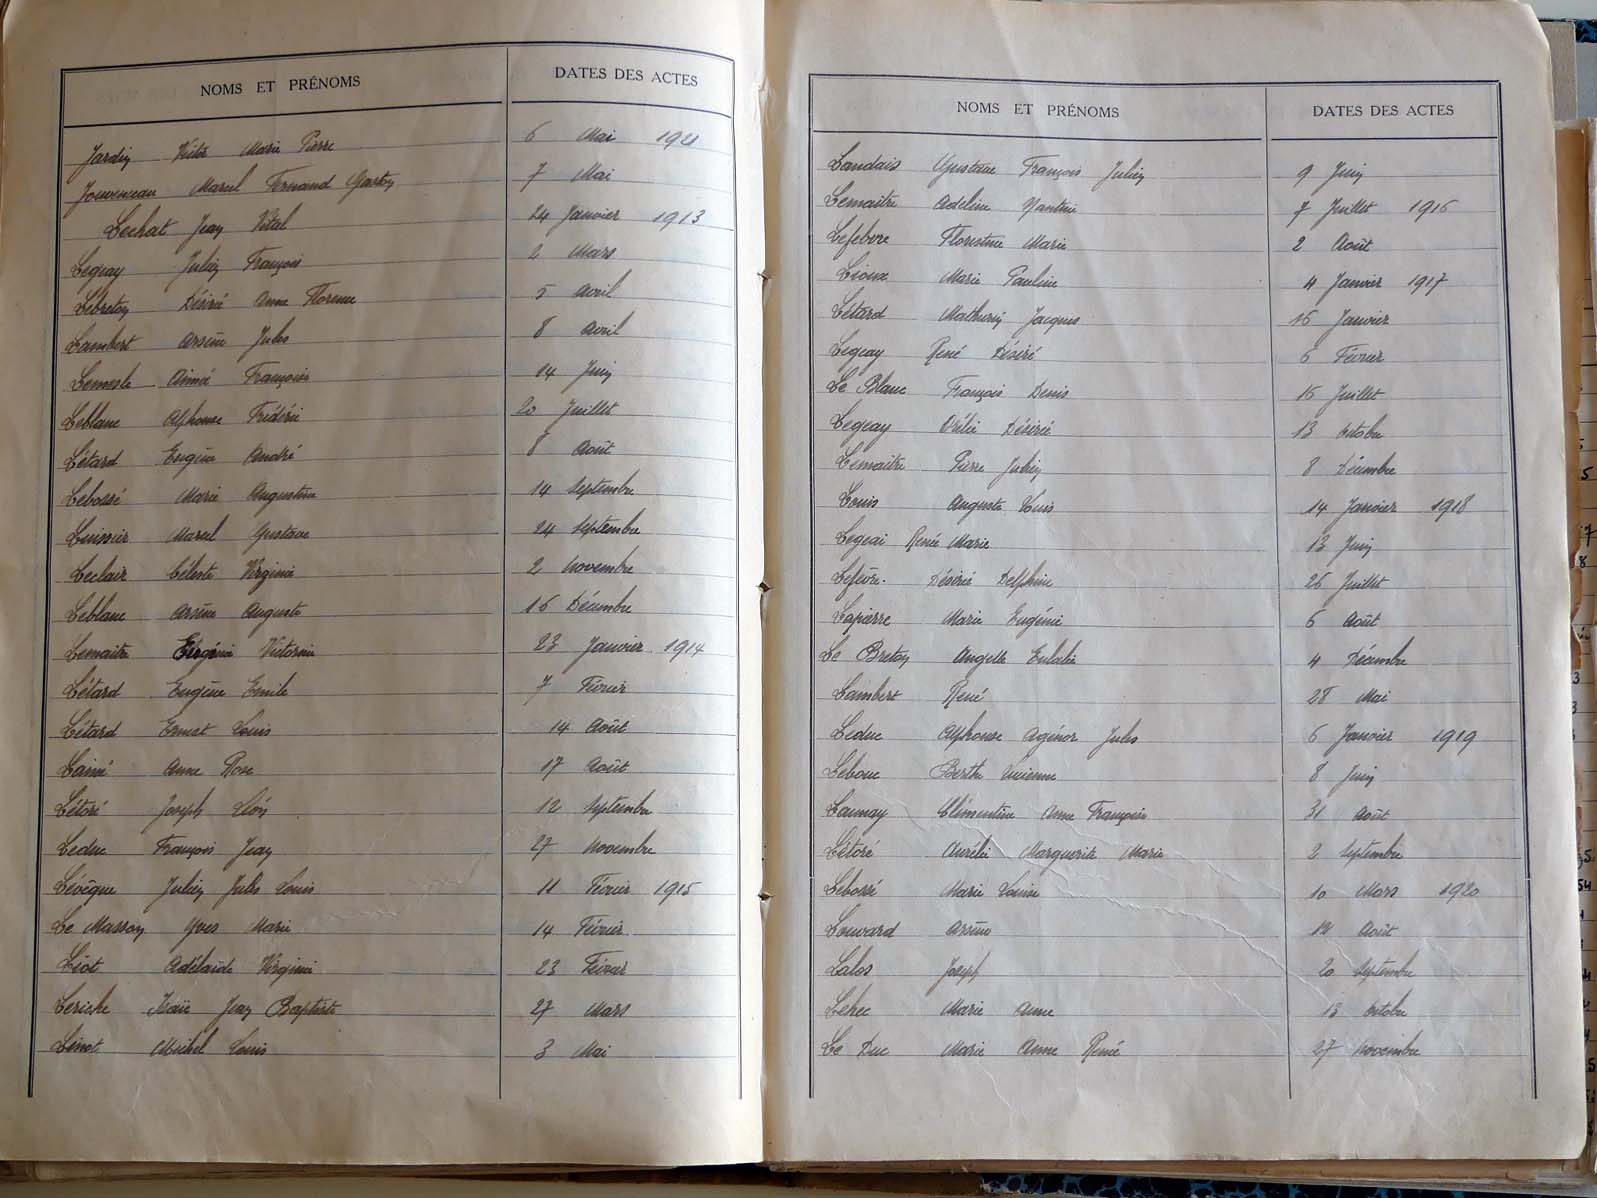 NOMS ET PRÉNOMS DATES DES ACTES
Jardin Victor Marie Pierre 6 Mai 1921
Jouveneau Marcel Fernand Gaston 7 Mai
Lechat Jean Vital 24 Janvier 1913
Legeay Julien François 2 Mars
Lebreton Désiré Anne Florence 5 Avril
Lambert Arsène Jules 8 Avril
Lemesle Aimé François 14 Juin
Leblanc Alphonse Frédéric 20 Juillet
Létard Eugène André 8 Août
Lebossé Marie Augustine 14 Septembre
Luissier Marcel Gustave 24 Septembre
Leclair Céleste Virginie 2 Novembre
Leblanc Arsène Auguste 16 Décembre
Lemaitre Victorine 23 Janvier 1914
Létard Eugène Emile 7 Février
Létard Ernest Louis 14 Août
Lainé Anne Rose 17 Août
Létoré Joseph Léon 12 Septembre
Leduc François Jean 27 Novembre
Lévêque Julien Jules Louis 11 Février 1915
Le Masson Yves Marie 14 Février
Liot Adélaïde Virginie 23 Février
Leriche Jean Baptiste 27 Mars
Linot Michel Louis 3 Mai
NOMS ET PRÉNOMS DATES DES ACTES
Landais Gustave François Julien 9 Juin
Lemaitre Adeline 7 Juillet 1916
Lefebvre Florentine Marie 2 Août
Lioux Marie Pauline 4 Janvier 1917
Létard Mathurin Jacques 16 Janvier
Legeay René Désiré 6 Février
Le Blanc François Denis 16 Juillet
Legeay Orélie Désirée 13 Octobre
Lemaitre Pierre Julien 8 Décembre
Louis Auguste Louis 14 Janvier 1918
Legeai Renée Marie 13 Juin
Lefèvre Désirée Delphine 26 Juillet
Lapierre Marie Eugénie 6 Août
Le Breton Angèle Eulalie 4 Décembre
Lambert René 28 Mai
Leduc Alphonse Agénor Jules 6 Janvier 1919
Lebouc Berthe Lucienne 8 Juin
Launay Clémentine Anne Françoise 31 Août
Létoré Aurélie Marguerite Marie 2 Septembre
Lebossé Marie Louise 10 Mars 1920
Louvard Arsène 12 Août
Lalos Joseph 20 Septembre
Lehec Marie Anne 13 Octobre
Le Duc Marie Anne Renée 27 Novembre